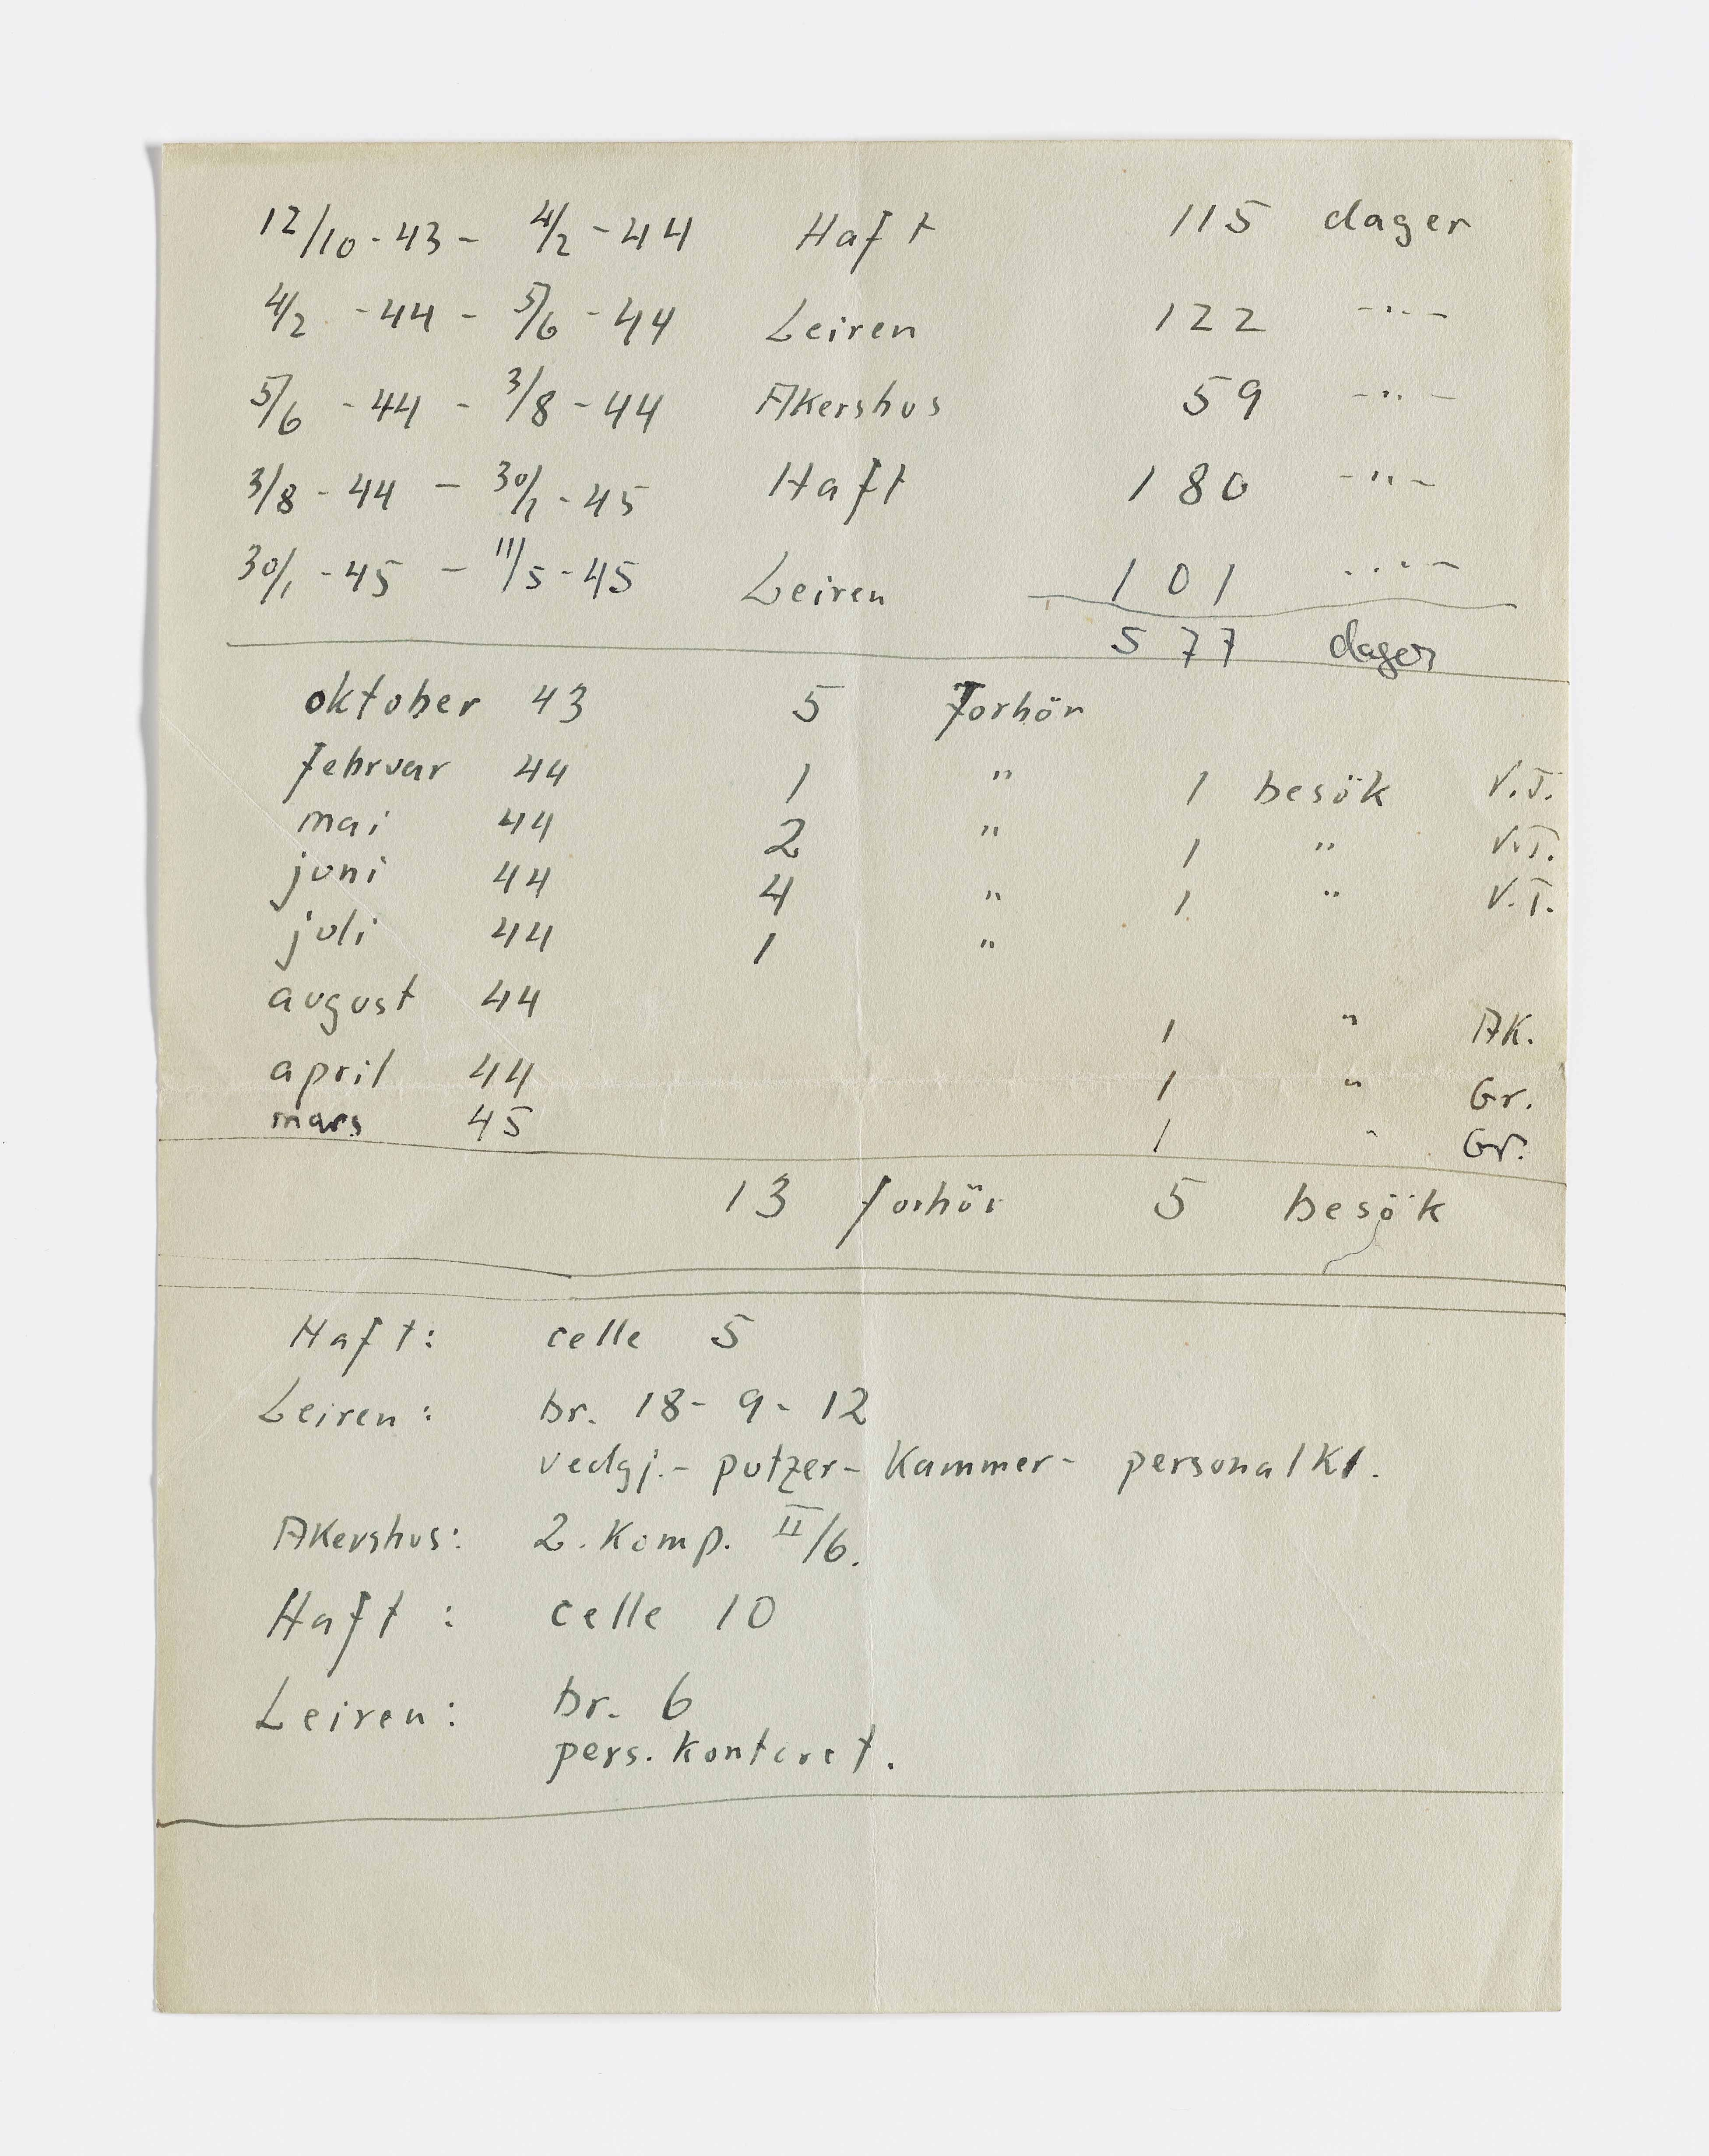 12/10-43 - 4/2-44 Haft 115 dager
4/2-44 - 5/6-44 Leiren 122 -"-
5/6-44 - 3/8-44 Akershus 59 -"-
3/8-44 - 30/1-45 Haft 180 -"-
30/1-45 - 11/5-45 Leiren 101 -"-
577 dager
oktober 43 5 forhör
februar 44 1 " 1 besök V.T.
mai 44 2 " 1 " V.T.
juni 44 4 " 1 " V.T.
juli 44 1 "
august 44 1 " AK.
april 44 1 " Gr.
mars 45 1 " Gr.
13 forhör 5 besök
Haft: celle 5
Leiren: br. 18-9-12
vedgj.- putzer- Kammer- personalkt.
Akershus: 2. Komp. II/6.
Haft: celle 10
Leiren: br. 6
pers. kontoret.